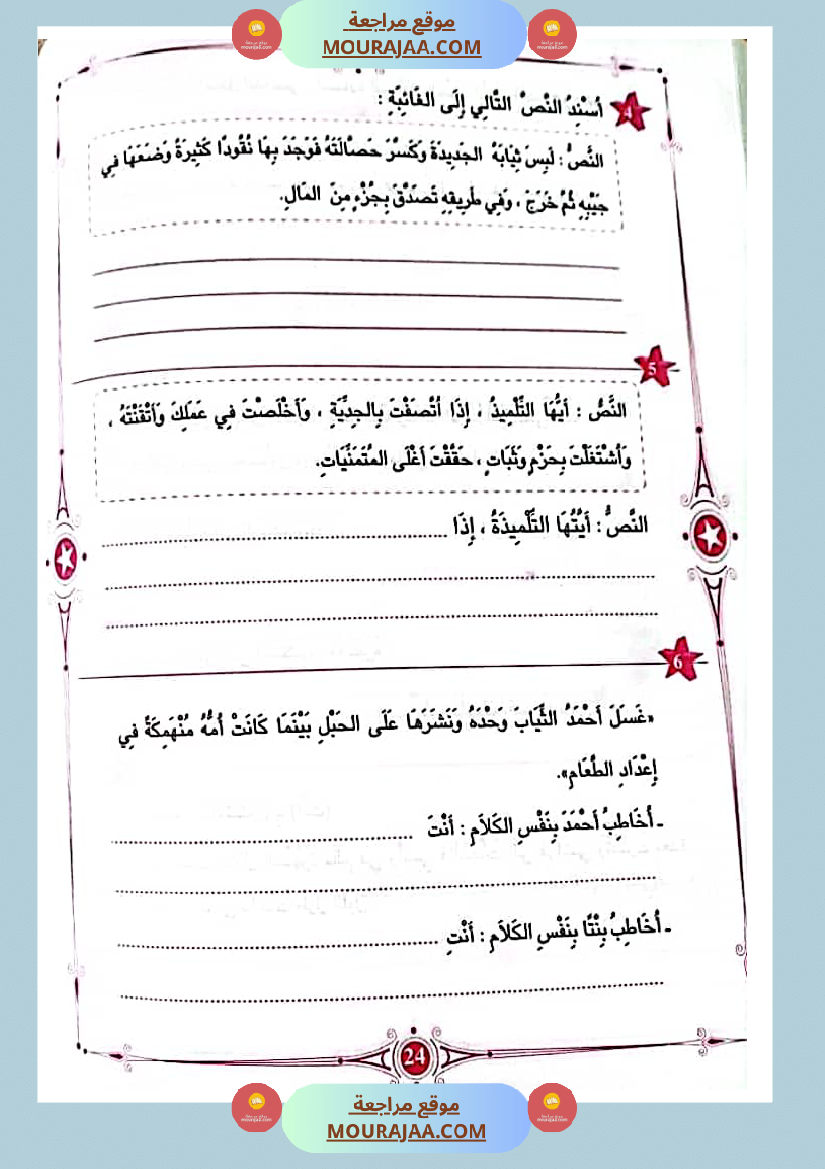 موقع مراجعة
MOURAJAA.COM
4 أُسْنِدُ النَّصَّ التَّالِي إِلَى الغَائِبَةِ :
النَّصُّ : لَبِسَ ثِيَابَهُ الجَدِيدَةَ وَكَسَّرَ حَصَّالَتَهُ فَوَجَدَ بِهَا نُقُودًا كَثِيرَةً وَضَعَهَا فِي
جَيْبِهِ ثُمَّ خَرَجَ ، وَفِي طَرِيقِهِ تَصَدَّقَ بِجُزْءٍ مِنَ المَالِ.
5
النَّصُّ : أَيُّهَا التِّلْمِيذُ ، إِذَا اتْصَفْتَ بِالجِدِّيَّةِ ، وَأَخْلَصْتَ فِي عَمَلِكَ وَأَتْقَنْتَهُ ،
وَاُشْتَغَلْتَ بِحَزْمٍ وَثَبَاتٍ ، حَقَّقْتَ أَغْلَى المُتَمَنَّيَاتِ.
النَّصُّ : أَيَّتُهَا التِّلْمِيذَةُ ، إِذَا ........................
6
«غَسَلَ أَحْمَدُ الثِّيَابَ وَحْدَهُ وَنَشَرَهَا عَلَى الحَبْلِ بَيْنَمَا كَانَتْ أُمُّهُ مُنْهَمِكَةً فِي
إِعْدَادِ الطَّعَامِ».
- أُخَاطِبُ أَحْمَدَ بِنَفْسِ الكَلاَمِ : أَنْتَ ........................
- أُخَاطِبُ بِنْتًا بِنَفْسِ الكَلاَمِ : أَنْتِ ........................
24
موقع مراجعة
MOURAJAA.COM